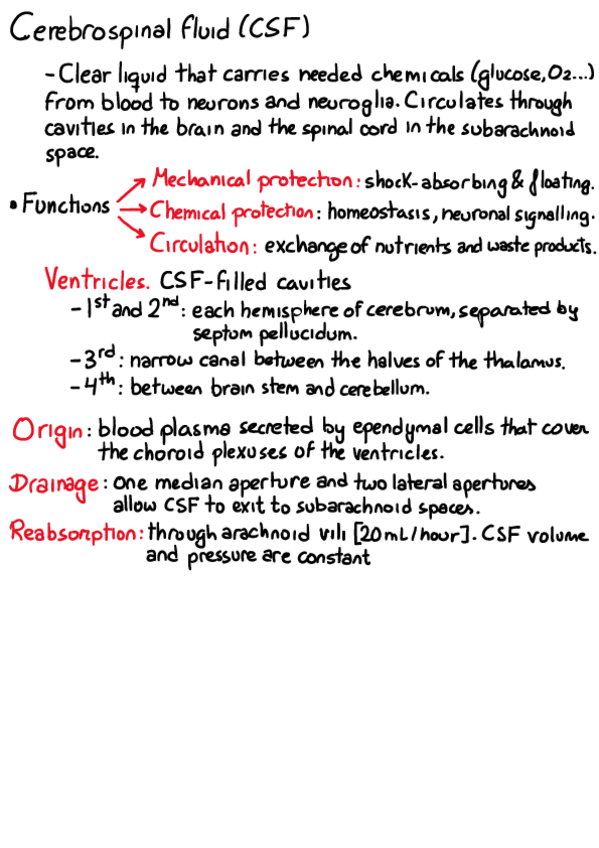 Cerebrospinal fluid (CSF)
- Clear liquid that carries needed chemicals (glucose, O2...)
from blood to neurons and neuroglia. Circulates through
cavities in the brain and the spinal cord in the subarachnoid
space.
• Functions
Mechanical protection: shock-absorbing & floating.
Chemical protection: homeostasis, neuronal signalling.
Circulation: exchange of nutrients and waste products.
Ventricles. CSF-filled cavities
- 1st and 2nd: each hemisphere of cerebrum, separated by
septum pellucidum.
- 3rd: narrow canal between the halves of the thalamus.
- 4th: between brain stem and cerebellum.
Origin: blood plasma secreted by ependymal cells that cover
the choroid plexuses of the ventricles.
Drainage: one median aperture and two lateral apertures
allow CSF to exit to subarachnoid spaces.
Reabsorption: through arachnoid vili [20mL/hour]. CSF volume
and pressure are constant